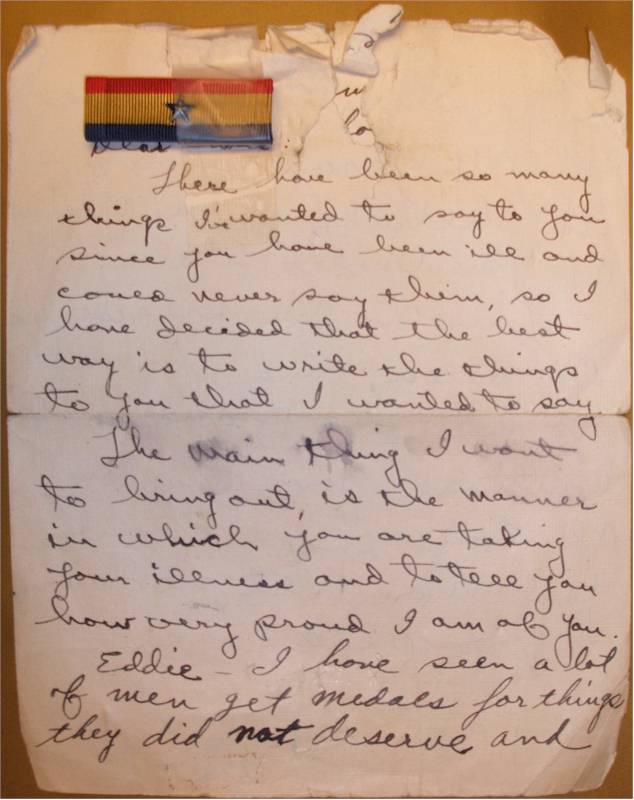 Dear
There have been so many
things I've wanted to say to you
since you have been ill and
could never say them, so I
have decided that the best
way is to write the things
to you that I wanted to say.
The main thing I want
to bring out, is the manner
in which you are taking
your illness and to tell you
how very proud I am of you.
Eddie - I have seen a lot
of men get medals for things
they did not deserve and